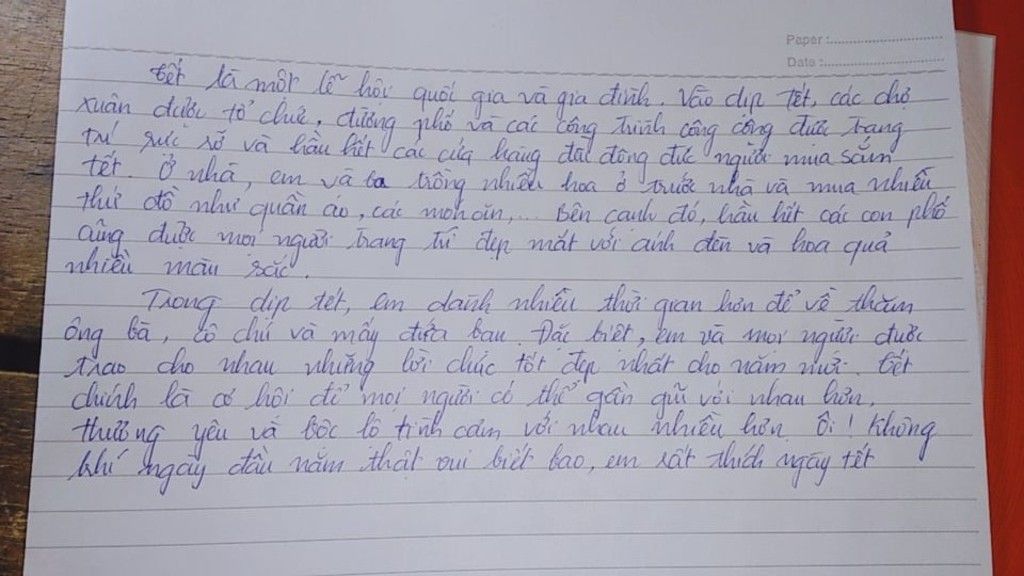 Paper :
Date :
tết là một lễ hội quốc gia và gia đình. Vào dịp tết, các chợ
xuân được tổ chức, đường phố và các công trình công cộng được trang
trí rực rỡ và hầu hết các cửa hàng đất đông đức người mua sắm
tết. Ở nhà, em và ta trồng nhiều hoa ở trước nhà và mua nhiều
thứ đồ như quần áo, các món ăn,... Bên cạnh đó, hầu hết các con phố
cũng được mọi người trang trí đẹp mắt với ánh đèn và hoa quả
nhiều màu sắc.
Trong dịp tết, em dành nhiều thời gian hơn để về thăm
ông bà, cô chú và mấy đứa bạn. Đặc biệt, em và mọi người được
trao cho nhau những lời chúc tốt đẹp nhất cho năm mới. tết
chính là cơ hội để mọi người có thể gần gũi với nhau hơn,
thương yêu và bộc lộ tình cảm với nhau nhiều hơn. Ôi! Không
khí ngày đầu năm thật vui biết bao, em rất thích ngày tết